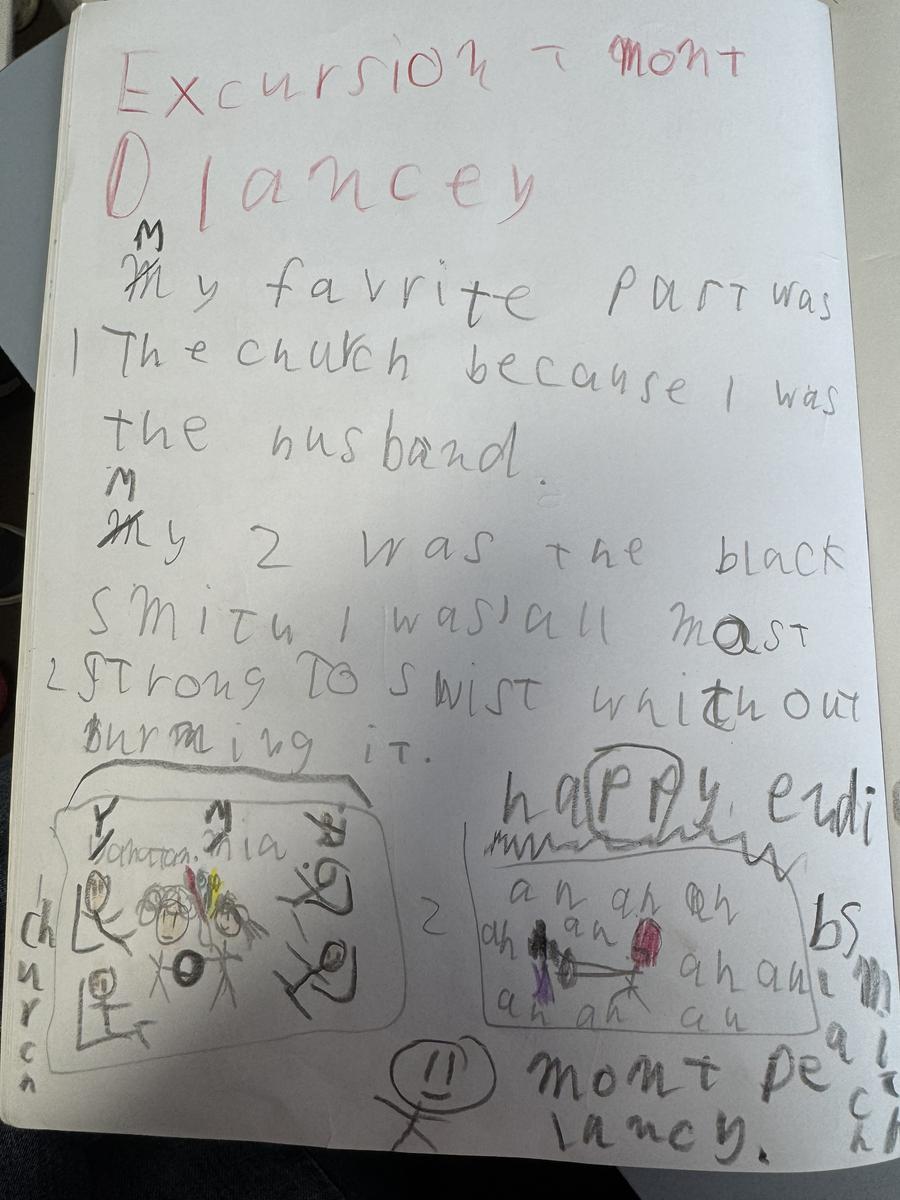 Excursion - mont
Dlancey
My favrite part was
1 The church because I was
the husband.
My 2 was the black
smith I was all most
2 strong to swist whithout
burming it.
happy endi
church
Mia
2
an n ah ah
ah an
ah an
an ah an
black
smith
mont pe
lancy.